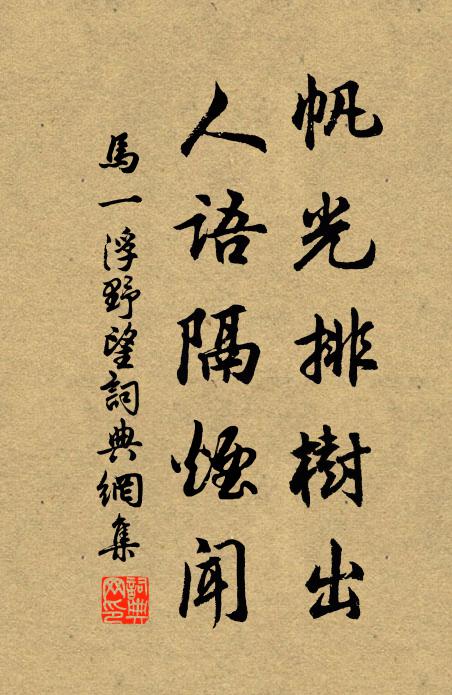 帆光排樹出
人語隔煙聞
馬一浮野望詞典網集
詞典網印